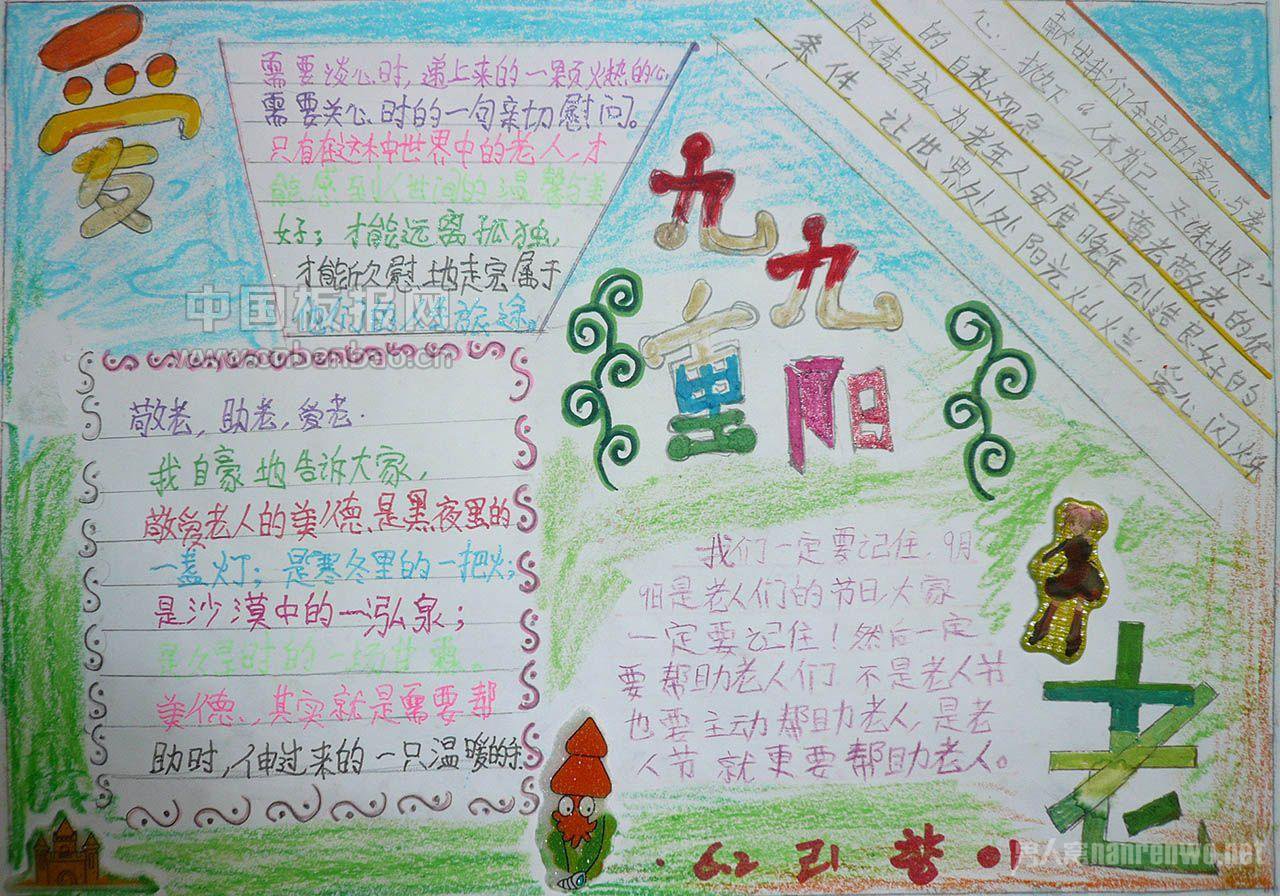 爱
需要谈心时，递上来的一颗火热的心
需要关心时的一句亲切慰问。
只有在这种世界中的老人，才
能感到人世间的温馨与美
好；才能远离孤独，
才能欣慰地走完属于
旅途。
中国板报网
www.cnbanbao.cn
九九
重阳
献出我们全部的爱心与孝
心，抛下“人不为己，天诛地灭”
的自私观念，弘扬尊老敬老的优
良传统，为老年人安度晚年创造良好的
条件，让世界处处阳光灿烂，爱心闪烁
！
敬老，助老，爱老.
我自豪地告诉大家，
敬爱老人的美德、是黑夜里的
一盏灯；是寒冬里的一把火；
是沙漠中的一泓泉；
是久旱时的一场甘霖。
美德、，其实就是需要帮
助时，伸过来的一只温暖的手
我们一定要记住9月
9日是老人们的节日，大家
一定要记住！然后一定
要帮助老人们 不是老人节
也要主动帮助老人，是老
人节就更要帮助老人。
老
6.2
nanrenwo.net